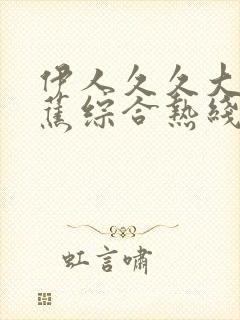 伊人久久大
蕉综合热线
虹言啸